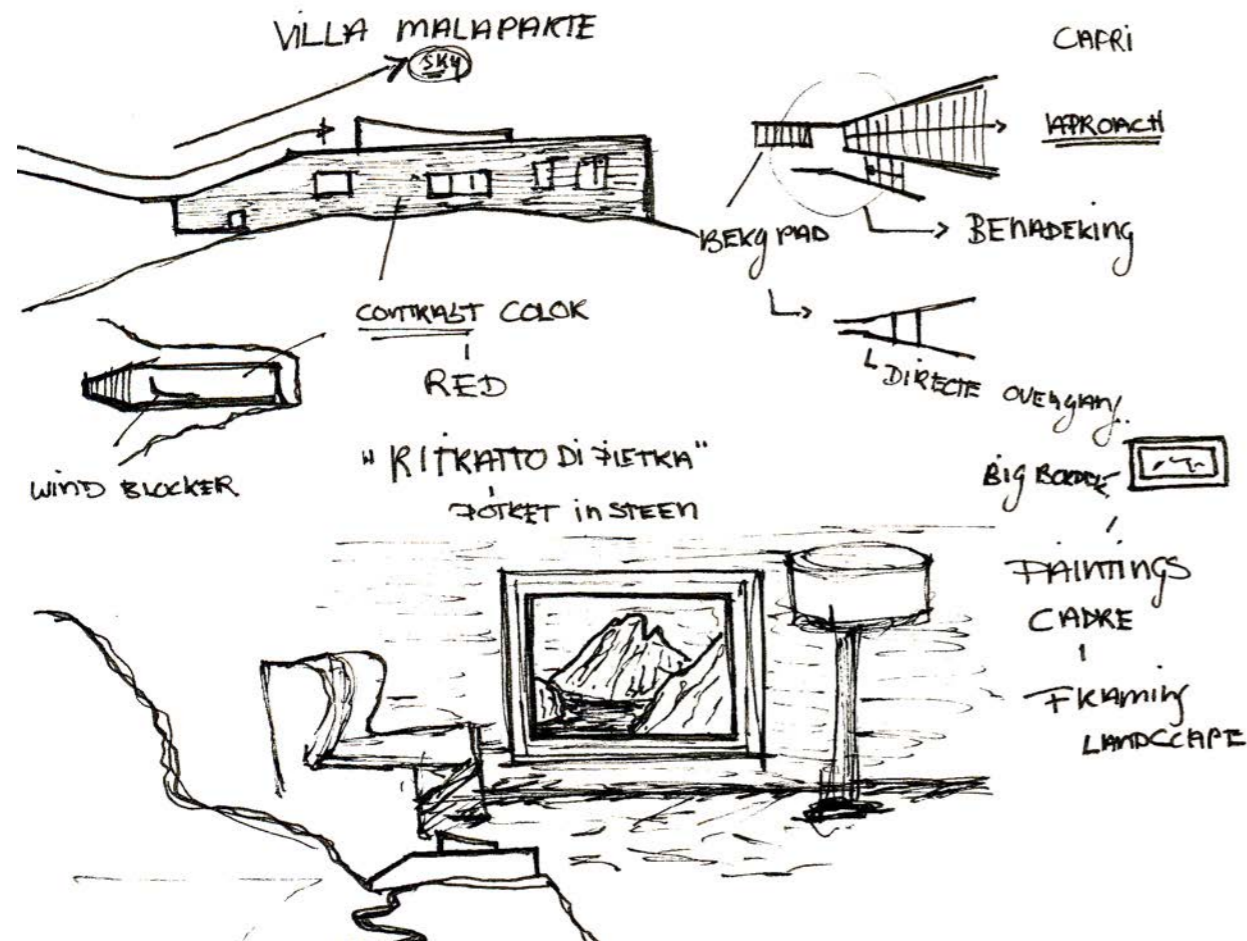 VILLA MALAPARTE
SKY
CAPRI
APROACH
BERG PAD
BENADERING
CONTRAST COLOR
RED
DIRECTE OVERGANG.
WIND BLOCKER
"RITRATTO DI PIETRA"
POTRET in STEEN
Big BORDER
PAINTINGS
CADRE
FRAMING
LANDCCAPE